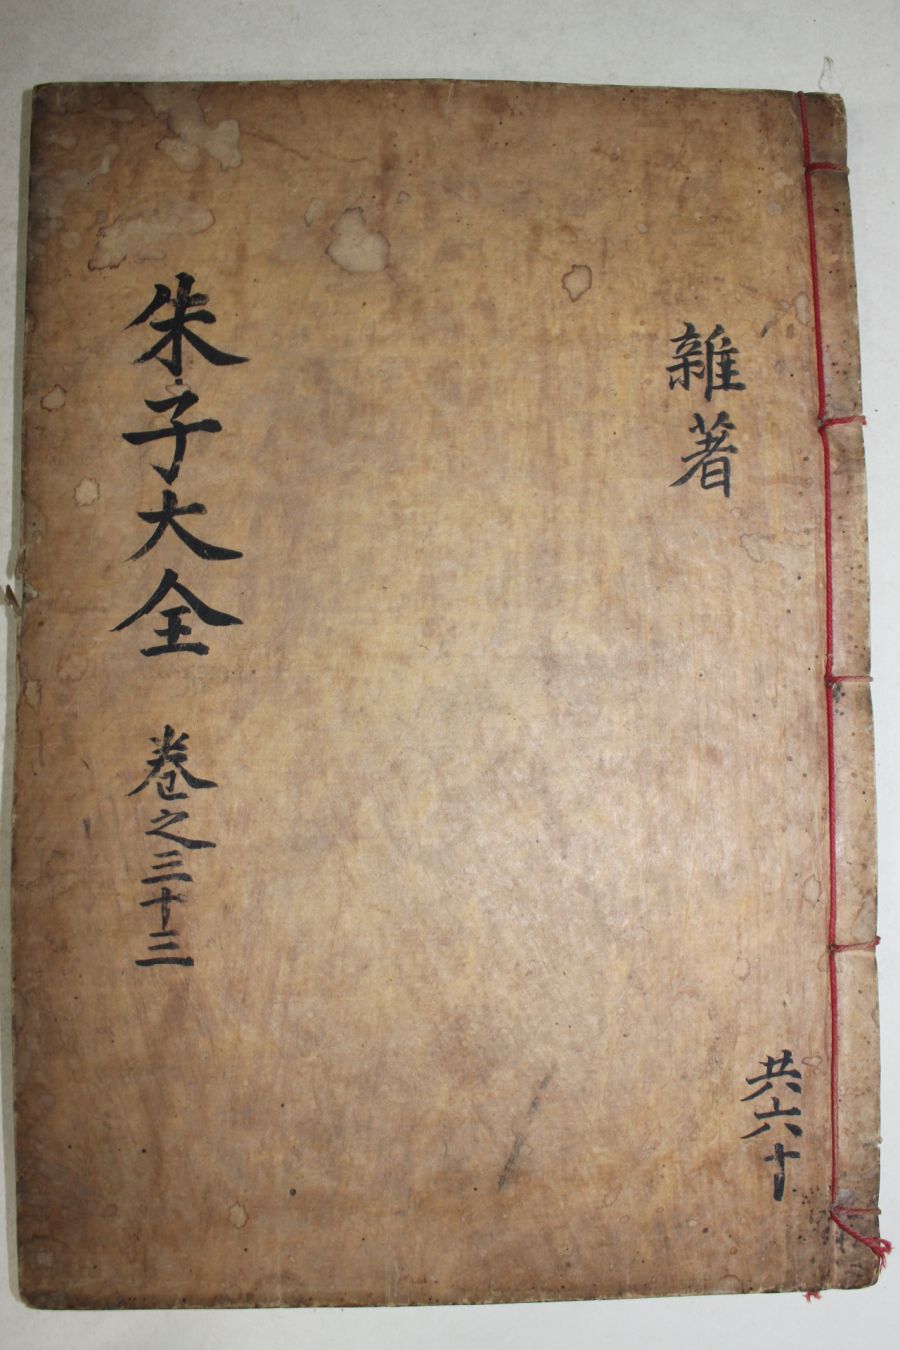 朱子大全 卷之三十三
雜著
共六十